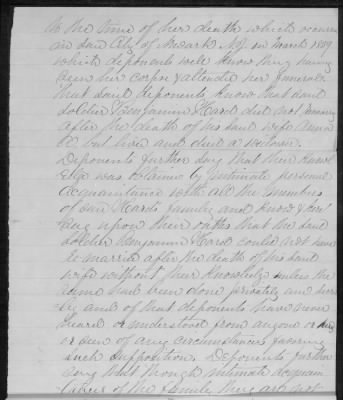 to the time of her death which occurred
in said City of Newark N.J. in March 1889
which deponents well know they having
seen her corpse & attended her funeral
that said deponents know that said
soldier Benjamin Harod did not marry
after the death of his said wife Anna
but lived and died a widower.
Deponents further say that their knowl
edge was obtained by intimate personal
acquaintance with all the members
of said Harods family and know &
upon their oaths that the said
soldier Benjamin Harod could not have
re married after the death of his said
wife without their knowledge unless the
same had been done privately and
and of that deponents have never
heard or understood from anyone or
of any circumstances favoring
such supposition. Deponents further
say that though intimate acquain
tances of the family they are not